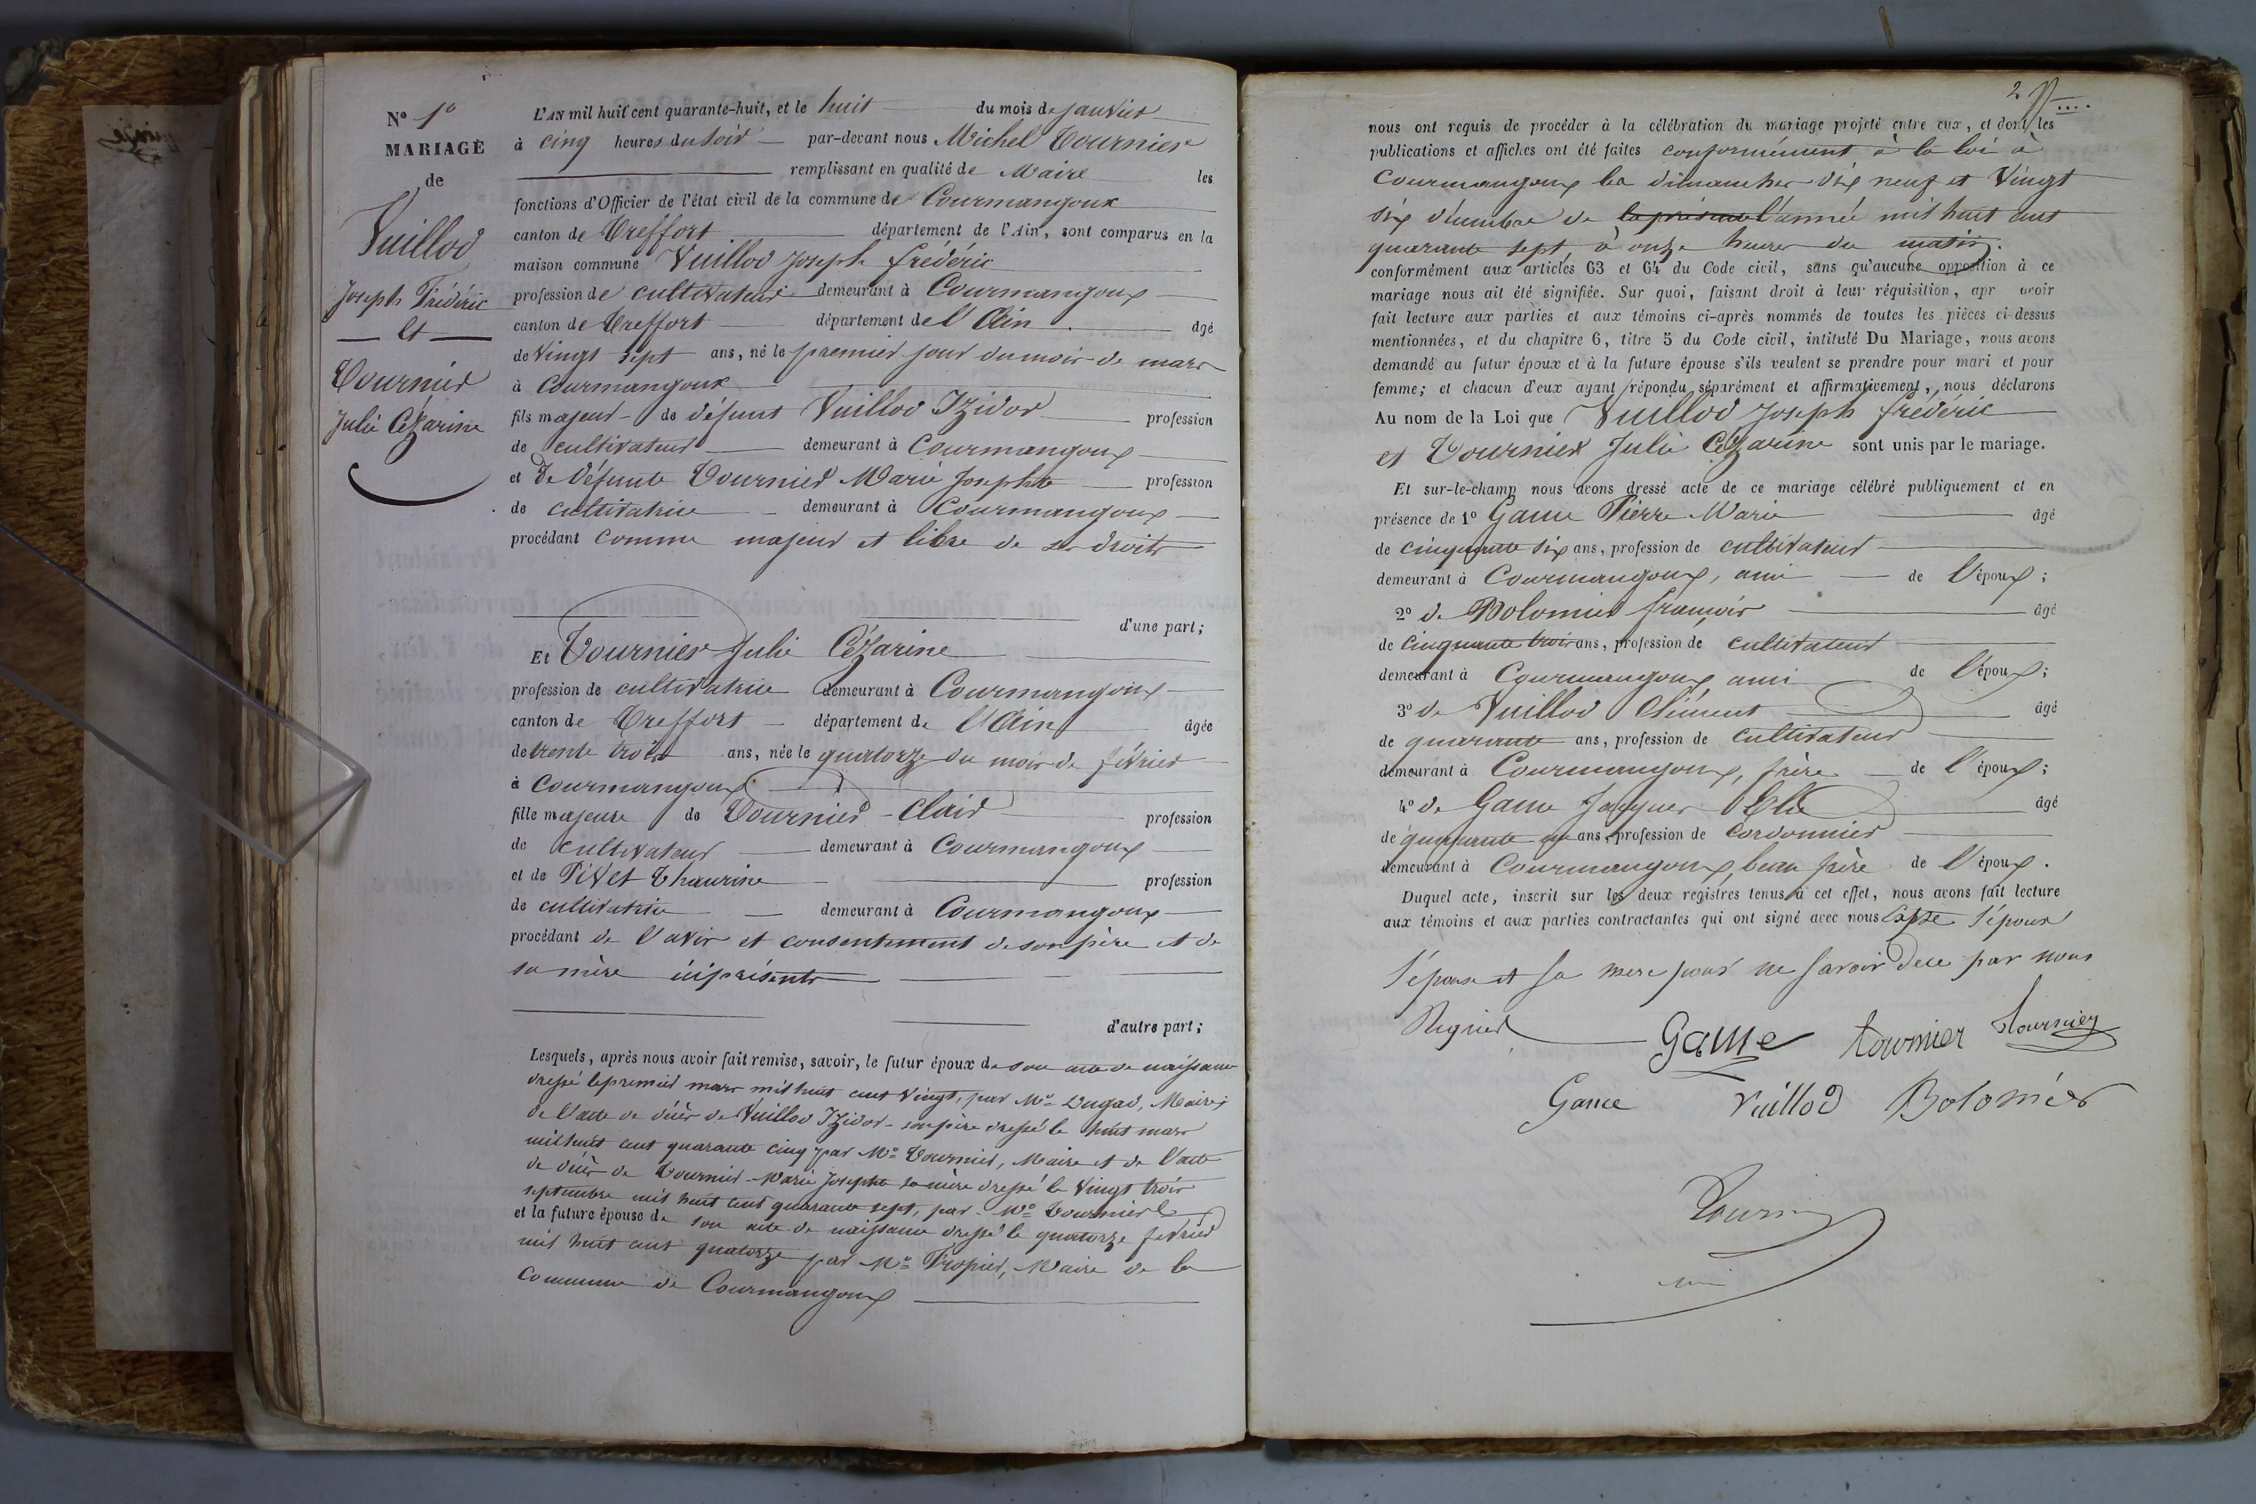 Nº 1º
MARIAGE
de
Vuillod
Joseph Frédéric
et
Tournier
Julie Cézarine
L'AN mil huit cent quarante-huit, et le huit du mois de janvier
à cinq heures du soir par-devant nous Michel Tournier
remplissant en qualité de Maire les
fonctions d'Officier de l'état civil de la commune de Courmangoux
canton de Treffort département de l'Ain, sont comparus en la
maison commune Vuillod Joseph frédéric
profession de cultivateur demeurant à Courmangoux
canton de Treffort département de l'Ain âgé
de vingt sept ans, né le premier jour du mois de mars
à Courmangoux
fils majeur de défunt Vuillod Izidor profession
de cultivateur demeurant à Courmangoux
et de défunte Tournier Marie Josephte profession
de cultivatrice demeurant à Courmangoux
procédant comme majeur et libre de ses droits
d'une part;
Et Tournier Julie Cézarine
profession de cultivatrice demeurant à Courmangoux
canton de Treffort département de l'Ain âgée
de trente trois ans, née le quatorze du mois de février
à Courmangoux
fille majeure de Tournier Clair profession
de cultivateur demeurant à Courmangoux
et de Pivet Thaurine profession
de cultivatrice demeurant à Courmangoux
procédant de l'avis et consentement de son père et de
sa mère ici présents
d'autre part;
Lesquels, après nous avoir fait remise, savoir, le futur époux de son acte de naissance
dressé le premier mars mil huit cent vingt, par Mr Dugad, Maire,
de l'acte de décès de Vuillod Izidor son père dressé le huit mars
mil huit cent quarante cinq par Mr Tournier, Maire et de l'acte
de décès de Tournier Marie Josephte sa mère dressé le vingt trois
septembre mil huit cent quarante sept, par Mr Tournier
et la future épouse de son acte de naissance dressé le quatorze février
mil huit cent quatorze par Mr Propier, Maire de la
commune de Courmangoux
2
nous ont requis de procéder à la célébration du mariage projeté entre eux, et dont les
publications et affiches ont été faites conformément à la loi à
Courmangoux les dimanches dix neuf et vingt
six décembre de la présente l'année mil huit cent
quarante sept, à onze heures du matin.
conformément aux articles 63 et 64 du Code civil, sans qu'aucune opposition à ce
mariage nous ait été signifiée. Sur quoi, faisant droit à leur réquisition, apr avoir
fait lecture aux parties et aux témoins ci-après nommés de toutes les pièces ci-dessus
mentionnées, et du chapitre 6, titre 5 du Code civil, intitulé Du Mariage, nous avons
demandé au futur époux et à la future épouse s'ils veulent se prendre pour mari et pour
femme; et chacun d'eux ayant répondu séparément et affirmativement, nous déclarons
Au nom de la Loi que Vuillod Joseph frédéric
et Tournier Julie Cézarine sont unis par le mariage.
Et sur-le-champ nous avons dressé acte de ce mariage célébré publiquement et en
présence de 1º Game Pierre Marie âgé
de cinquante six ans, profession de cultivateur
demeurant à Courmangoux, ami de l'époux;
2º de Bolomier françois âgé
de cinquante trois ans, profession de cultivateur
demeurant à Courmangoux ami de l'époux;
3º de Vuillod Clément âgé
de quarante ans, profession de cultivateur
demeurant à Courmangoux, frère de l'époux;
4º de Game Jacques Elie âgé
de quarante un ans, profession de cordonnier
demeurant à Courmangoux, beau frère de l'époux.
Duquel acte, inscrit sur les deux registres tenus à cet effet, nous avons fait lecture
aux témoins et aux parties contractantes qui ont signé avec nous l'époux
l'épouse et sa mere pour ne savoir de ce par nous
Requier
Game tournier Tournier
Game Vuillod Bolomier
Tournier